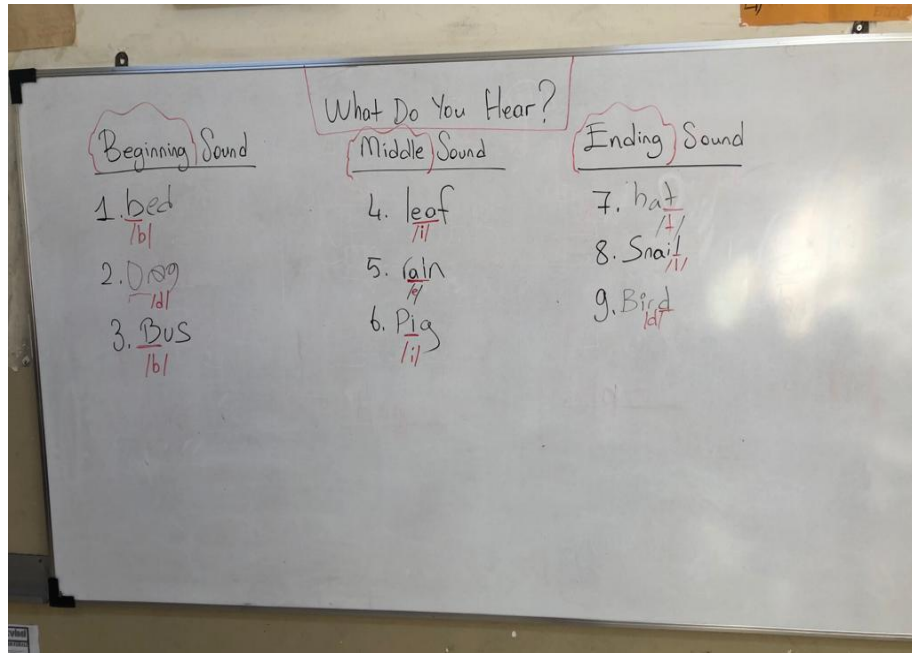 What Do You Hear?
Beginning Sound
1. bed
/b/
2. Drog
/d/
3. Bus
/b/
Middle Sound
4. leaf
/i/
5. rain
/e/
6. Pig
/i/
Ending Sound
7. hat
/t/
8. Snail
/l/
9. Bird
/d/